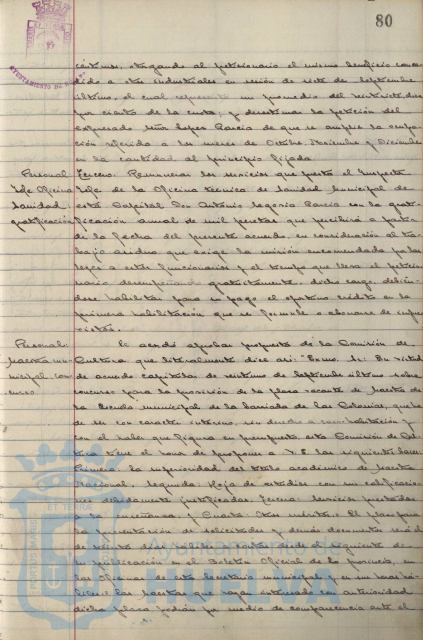 80
AYUNTAMIENTO DE
céntimos, otorgando al peticionario el mismo beneficio conce-
dido a otros industriales en sesión de siete de Septiembre
último, el cual representa un promedio del veinticinco
por ciento de la cuota; y desestimar la petición del
expresado señor López García de que se amplíe la
referida a los meses de Octubre, Noviembre y Diciembre
en la cantidad al principio fijada
Personal
Jefe Oficina
Sanidad
gratificación
Tercero: Remunerar los servicios que presta el Inspecto
Jefe de la Oficina técnica de Sanidad Municipal de
esta Capital Don Antonio García con la grati-
ficación anual de mil pesetas que percibirá a partir
de la fecha del presente acuerdo, en consideración al tra-
bajo arduo que exige la misión encomendada por las
leyes a estos funcionarios y el tiempo que lleva el peticio-
nario desempeñando gratuitamente dicho cargo, debién-
dose habilitar para su pago el oportuno crédito en la
primera habilitación que se formule o abonarse de impre-
vistos.
Personal:
Maestra mu-
nicipal con-
curso
Se acordó aprobar propuesta de la Comisión de
Cultura que literalmente dice así: "Excmo. Sr: En virtud
de acuerdo capitular de veintiuno de Septiembre último, sobre
concurso para la provisión de la plaza vacante de Maestra de
la Escuela municipal de la barriada de las Colonias, que ha
de ser con carácter interino, sin derecho a casa habitación y
con el haber que figura en presupuesto, esta Comisión de Cul-
tura tiene el honor de proponer a V.E. las siguientes bases:
Primera: la superioridad del título académico de Maestra
Nacional, Segunda: Hoja de estudios con sus calificacio-
nes debidamente justificadas. Tercera: Servicios prestados
a la enseñanza, y Cuarta: Otros méritos. El plazo para
la presentación de solicitudes y demás documentos será el
de a partir desde el siguiente de
su publicación en el Boletín Oficial de la provincia, en
las Oficinas de esta Secretaría municipal y en
las Maestras que hayan interesado con anterioridad
dicha plaza podrán por medio de comparecencia ante el
Ayuntamiento de
HUELVA
PORTUS MARIS
ET TERRAE